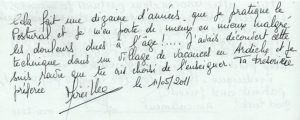 Cela fait une dizaine d'années, que je pratique le
Postural et je me porte de mieux en mieux malgré
les douleurs dues à l'âge!.... J'avais découvert cette
technique dans un village de vacances en Ardèche et je
suis ravie que tu aies choisi de l'enseigner. Ta
préférée Mireille le 11/05/2011